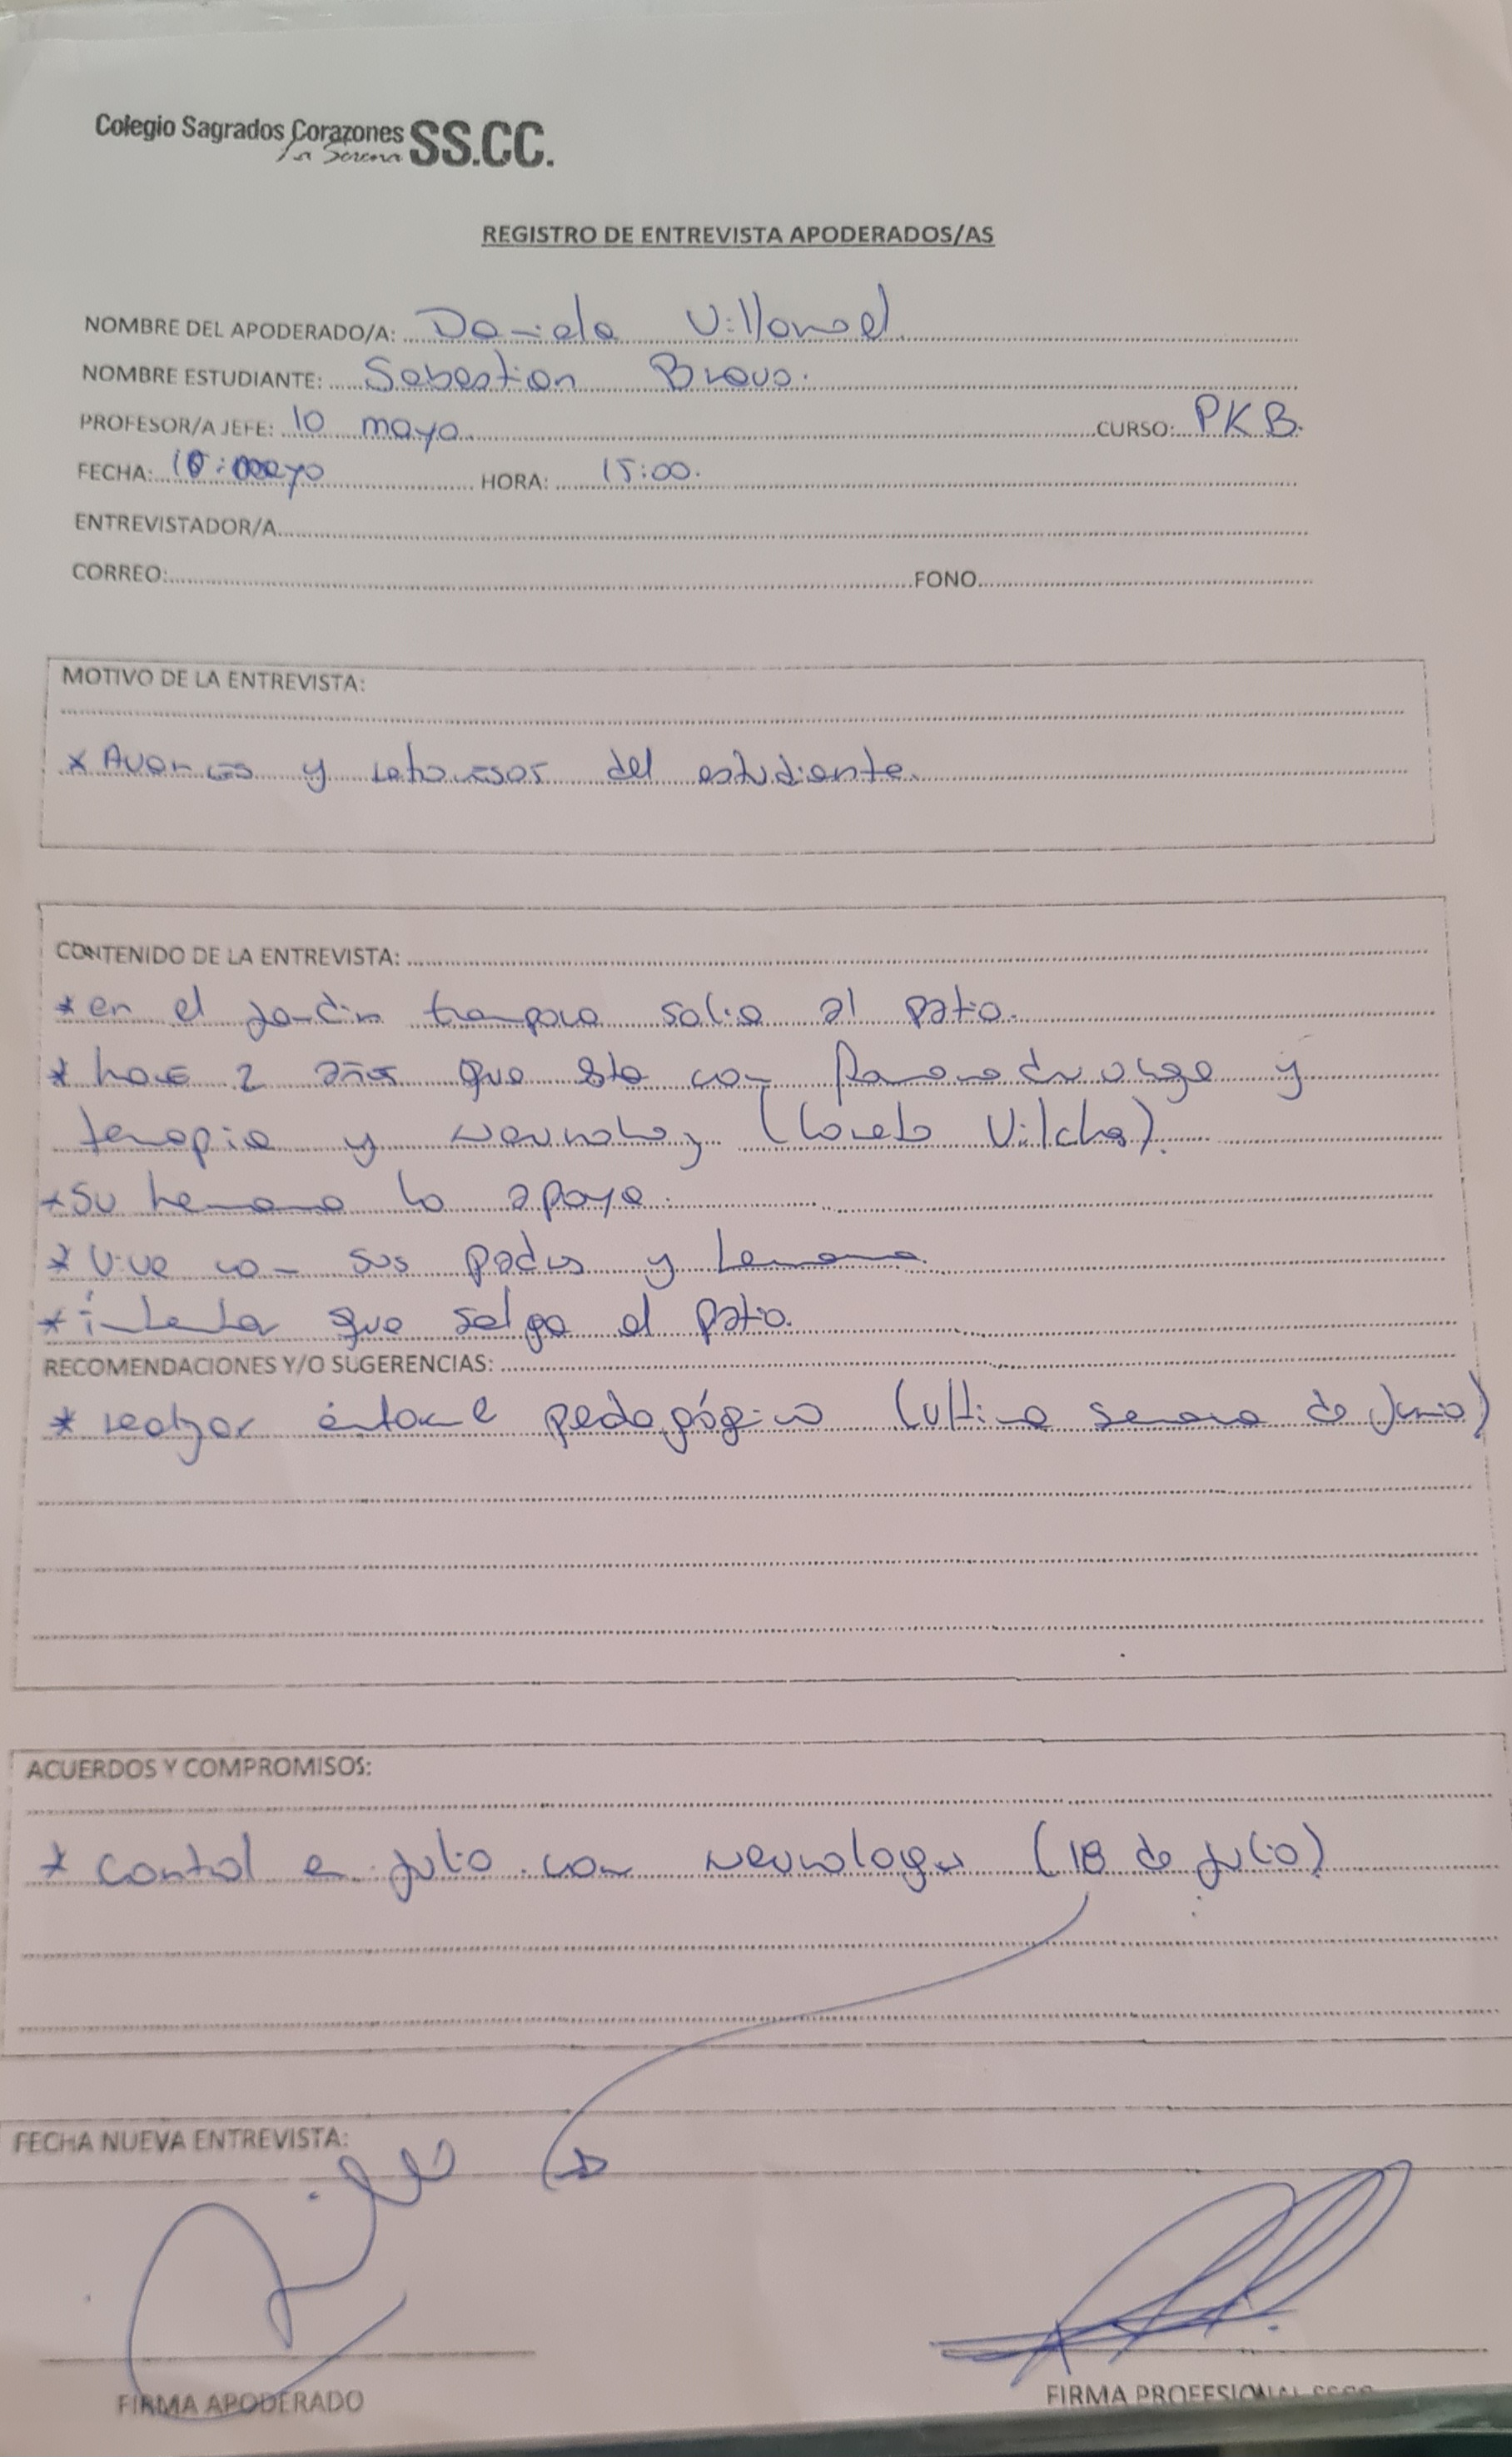 Colegio Sagrados Corazones SS.CC.
La Serena
REGISTRO DE ENTREVISTA APODERADOS/AS
NOMBRE DEL APODERADO/A: Daniela Villarroel
NOMBRE ESTUDIANTE: Sebastian Bravo.
PROFESOR/A JEFE: 10 mayo CURSO: PKB.
FECHA: 10 mayo HORA: 15:00.
ENTREVISTADOR/A
CORREO: FONO
MOTIVO DE LA ENTREVISTA:
* Avances y retrocesos del estudiante.
CONTENIDO DE LA ENTREVISTA:
* en el jardin tampoco salia al patio.
* hace 2 años que esta con y
terapia y (Loreto Vilches).
* Su hermano lo apoya.
* Vive con sus padres y hermano
* intentar que salga al patio.
RECOMENDACIONES Y/O SUGERENCIAS:
* realizar pedagógico (ultima semana de Junio)
ACUERDOS Y COMPROMISOS:
* Control en julio con (18 de julio)
FECHA NUEVA ENTREVISTA:
FIRMA APODERADO FIRMA PROFESIONAL SSCC